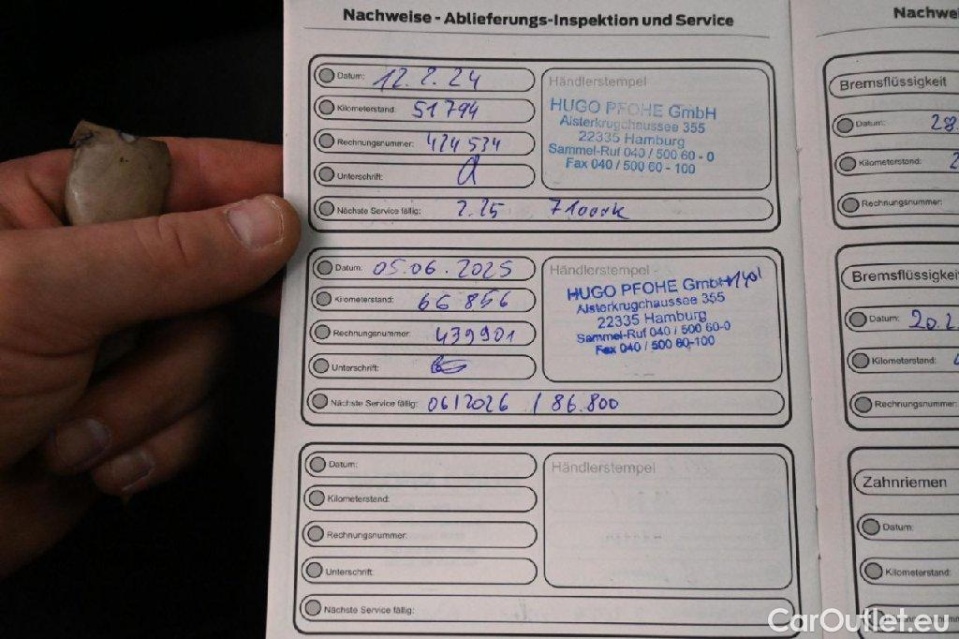 Nachweise - Ablieferungs-Inspektion und Service
Datum: 12.2.24
Kilometerstand: 51794
Rechnungsnummer: 424534
Unterschrift:
Nächste Service fällig: 2.25 71000k
Händlerstempel
HUGO PFOHE GmbH
Alsterkrugchaussee 355
22335 Hamburg
Sammel-Ruf 040 / 500 60 - 0
Fax 040 / 500 60 - 100
Datum: 05.06.2025
Kilometerstand: 66 856
Rechnungsnummer: 439901
Unterschrift:
Nächste Service fällig: 06/2026 / 86.800
Händlerstempel
HUGO PFOHE GmbH
Alsterkrugchaussee 355
22335 Hamburg
Sammel-Ruf 040 / 500 60-0
Fax 040 / 500 60-100
Datum:
Kilometerstand:
Rechnungsnummer:
Unterschrift:
Nächste Service fällig:
Händlerstempel
Bremsflüssigkeit
Datum: 28.
Kilometerstand:
Rechnungsnummer:
Bremsflüssigkei
Datum: 20.2.
Kilometerstand:
Rechnungsnummer:
Zahnriemen
Datum:
Kilometerstand:
CarOutlet.eu